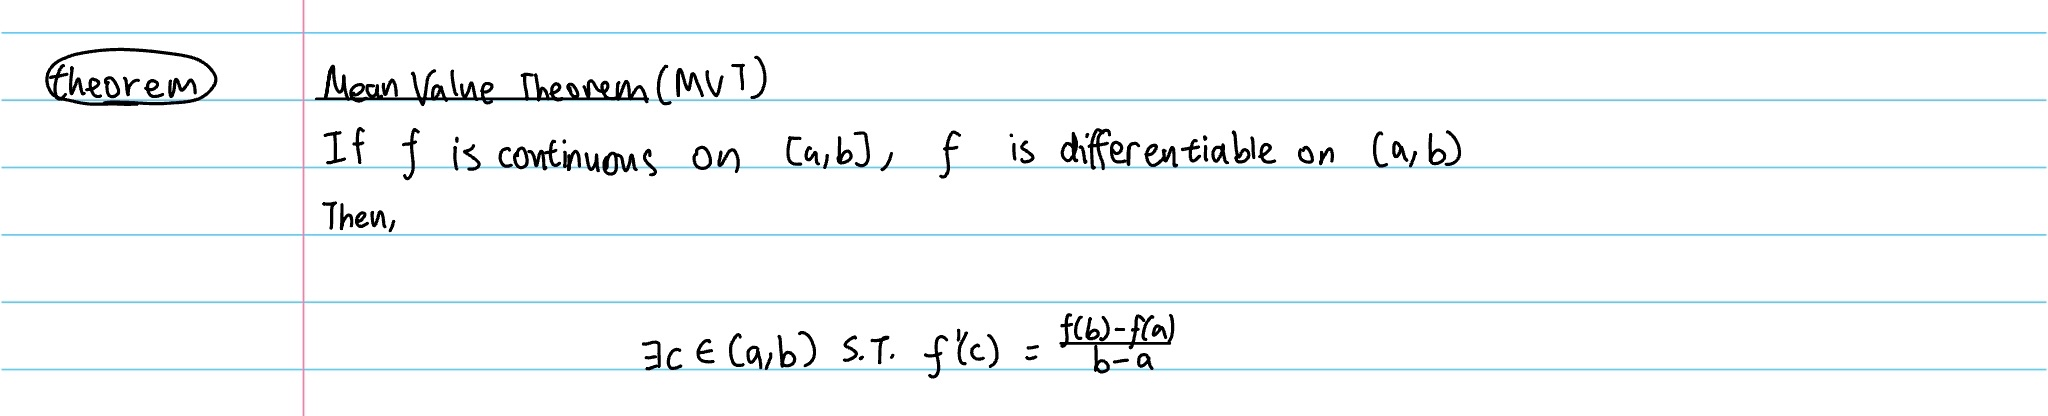 theorem
Mean Value Theorem (MVT)
If f is continuous on [a,b], f is differentiable on (a,b)
Then,
∃c ∈ (a,b) S.T. f'(c) = \frac{f(b)-f(a)}{b-a}